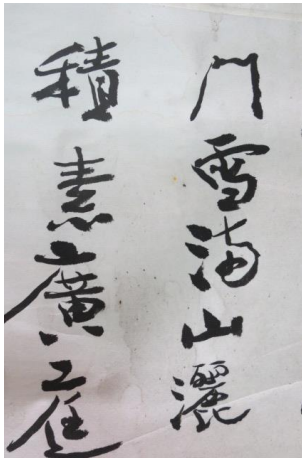 門雪滿山灑
積素廣庭